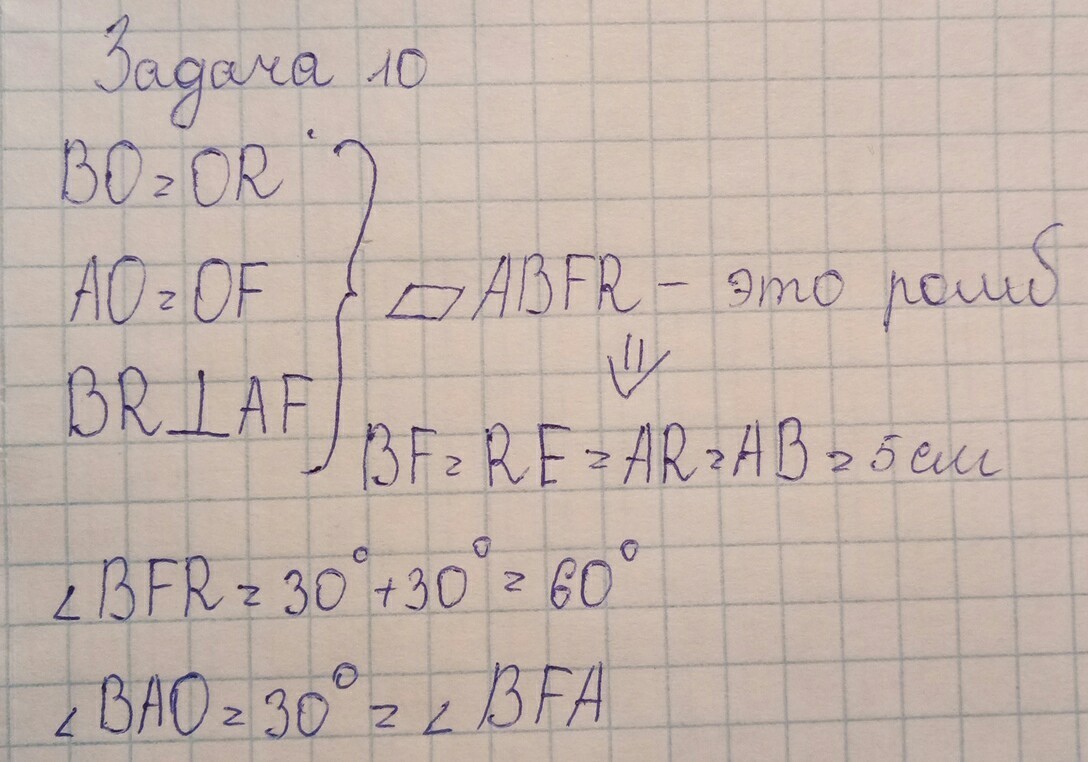 Задача 10
BO = OR
AO = OF
BR⊥AF
▱ABFR - это ромб
⇓
BF = RE = AR = AB = 5 см
∠BFR = 30° + 30° = 60°
∠BAO = 30° = ∠BFA